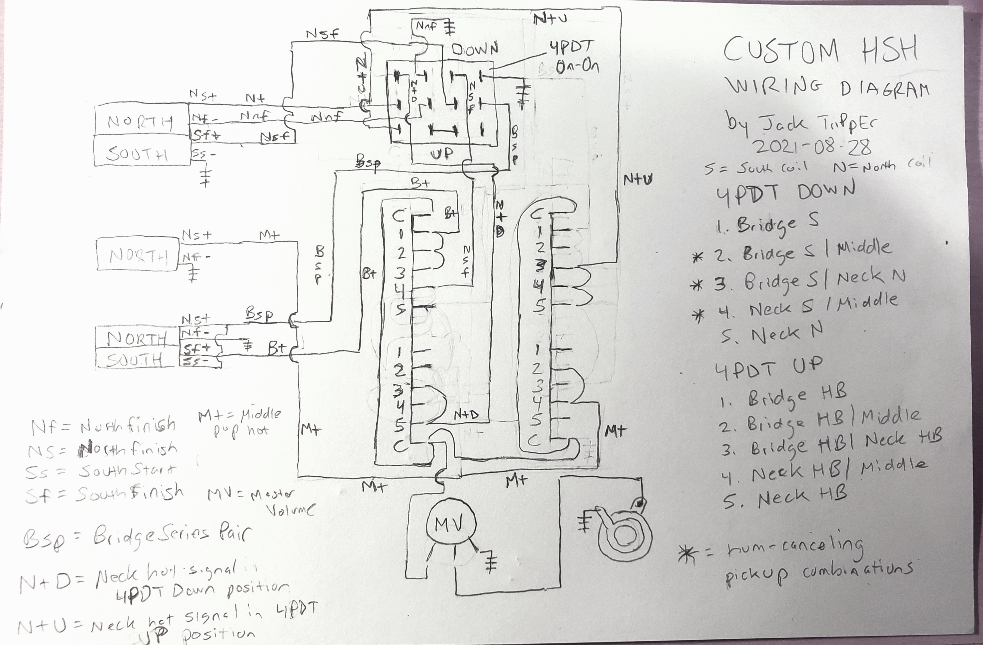 CUSTOM HSH
WIRING DIAGRAM
by Jack TrippEr
2021-08-28
S = South coil N = North coil
4PDT DOWN
1. Bridge S
* 2. Bridge S / Middle
* 3. Bridge S / Neck N
* 4. Neck S / Middle
5. Neck N
4PDT UP
1. Bridge HB
2. Bridge HB / Middle
3. Bridge HB / Neck HB
4. Neck HB / Middle
5. Neck HB
* = hum-canceling
pickup combinations
N+U
Nsf
Nnf
DOWN
4PDT
On-On
N+U
N+D
Nsf
UP
Bsp
Ns+
N+
NORTH
Nf-
Nnf
Nnf
Sf+
Nsf
SOUTH
Ss-
Bsp
B+
N+U
Ns+
M+
NORTH
Nf-
Bsp
B+
B+
Nsf
N+D
C
1
2
3
4
5
C
1
2
3
4
5
Ns+
Bsp
NORTH
Nf-
Sf+
B+
SOUTH
Ss-
1
2
3
4
5
C
1
2
3
4
5
C
N+D
M+
M+
M+
M+
MV
Nf = North finish
M+ = Middle
pup hot
NS = North finish
Ss = South Start
Sf = South Finish
MV = Master
Volume
Bsp = Bridge Series Pair
N+D = Neck hot signal in
4PDT Down position
N+U = Neck hot signal in 4PDT
UP position